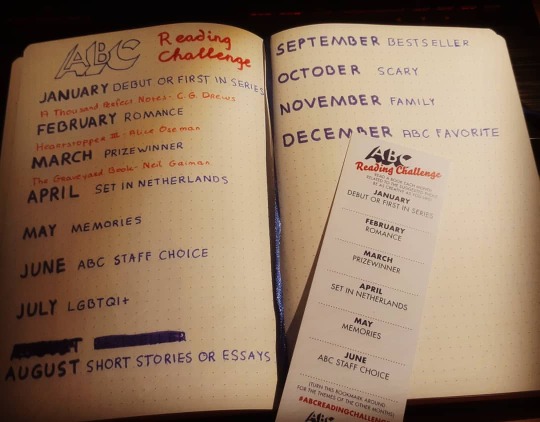 ABC Reading
Challenge
JANUARY DEBUT OR FIRST IN SERIES
A Thousand Perfect Notes - C.G. Drews
FEBRUARY ROMANCE
Heartstopper II - Alice Oseman
MARCH PRIZEWINNER
The Graveyard Book - Neil Gaiman
APRIL SET IN NETHERLANDS
MAY MEMORIES
JUNE ABC STAFF CHOICE
JULY LGBTQI+
AUGUST SHORT STORIES OR ESSAYS
SEPTEMBER BESTSELLER
OCTOBER SCARY
NOVEMBER FAMILY
DECEMBER ABC FAVORITE
ABC
Reading Challenge
READ A BOOK EACH MONTH
RELATED TO THE SUGGESTED THEME
BE AS CREATIVE AS YOU LIKE!
JANUARY
DEBUT OR FIRST IN SERIES
FEBRUARY
ROMANCE
MARCH
PRIZEWINNER
APRIL
SET IN NETHERLANDS
MAY
MEMORIES
JUNE
ABC STAFF CHOICE
(TURN THIS BOOKMARK AROUND
FOR THE THEMES OF THE OTHER MONTHS)
#ABCREADINGCHALLENGE
ABC